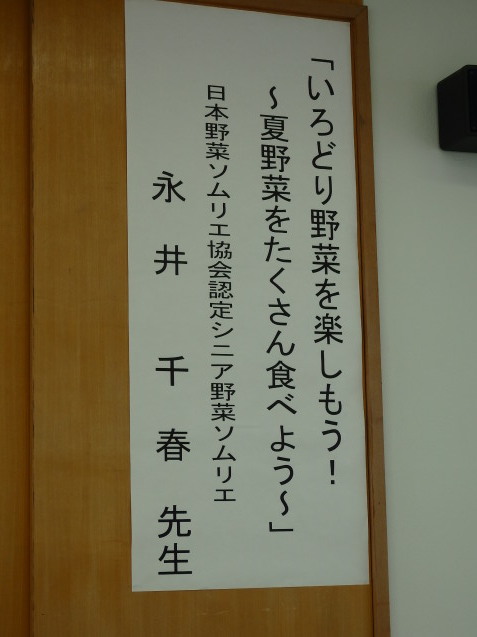 「いろどり野菜を楽しもう！
～夏野菜をたくさん食べよう～」
日本野菜ソムリエ協会認定シニア野菜ソムリエ
永井 千春 先生